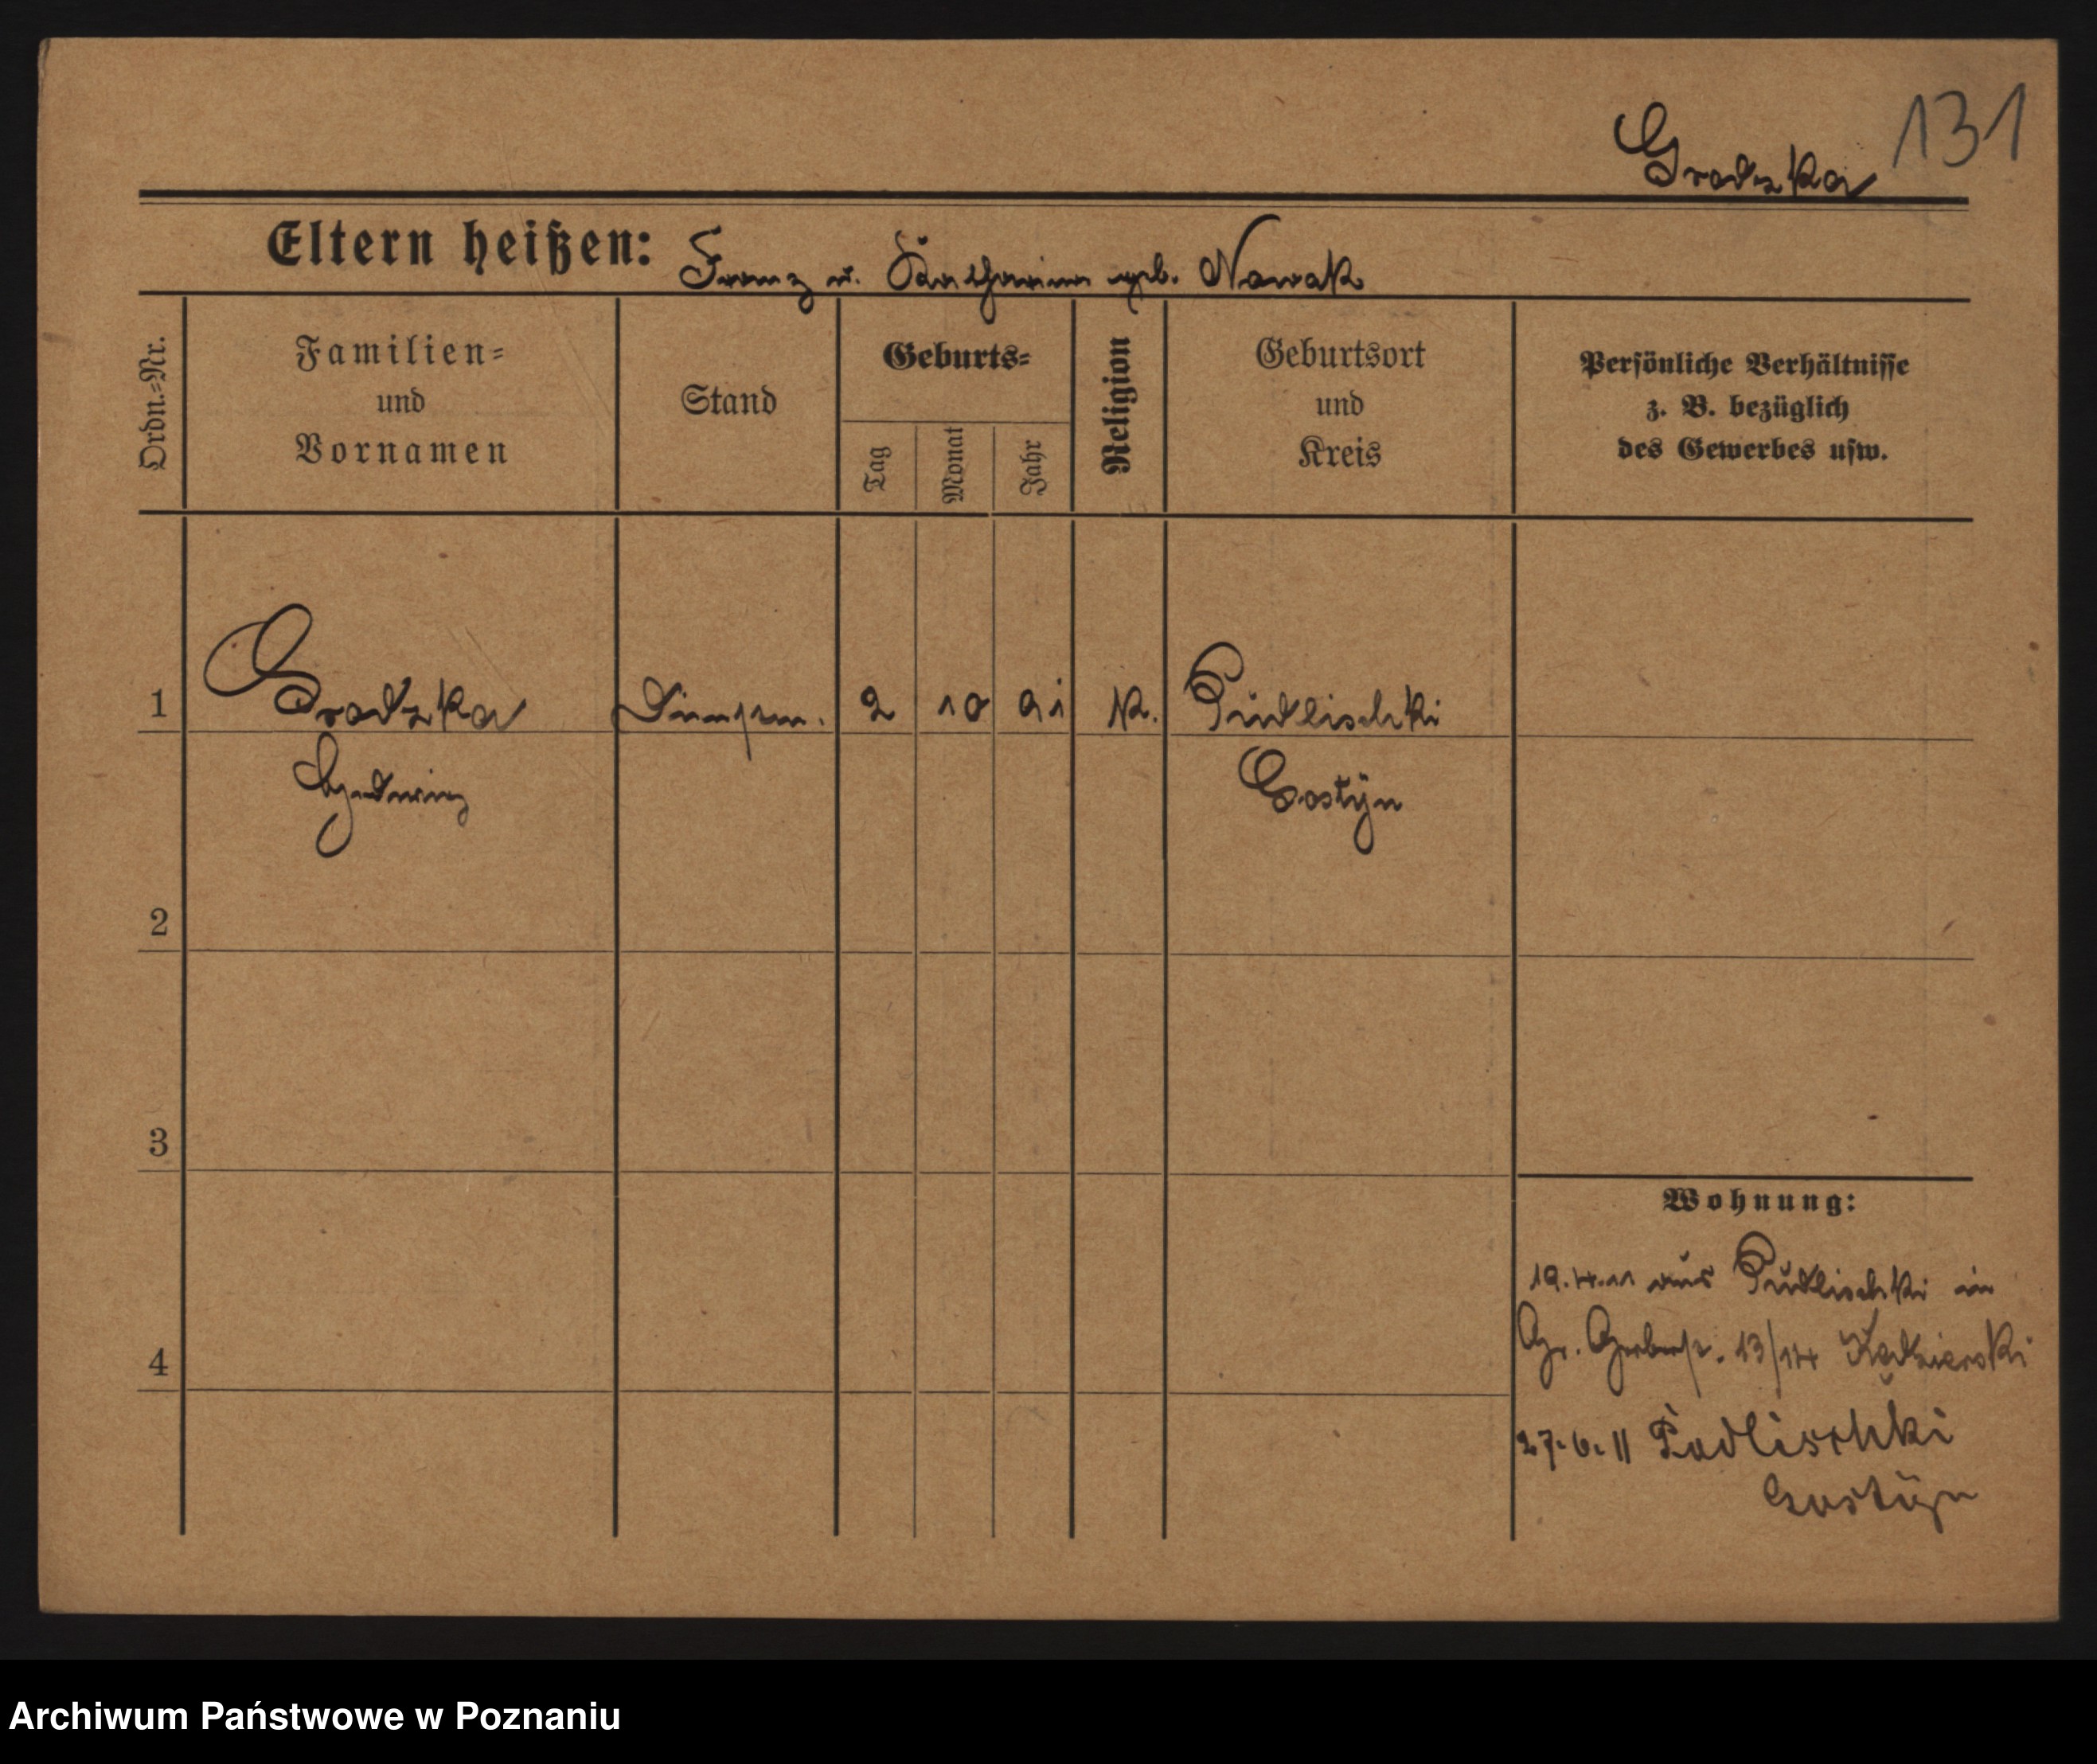 Grodzka 131
Eltern heißen: Franz u. Katharina geb. Nowak
Ordn.=Nr.
Familien=
und
Vornamen
Stand
Geburts=
Tag
Monat
Jahr
Religion
Geburtsort
und
Kreis
Persönliche Verhältnisse
z. B. bezüglich
des Gewerbes usw.
1 Grodzka 2 10 91 K. Pudlischki
Hedwig Gostyn
2
3
4
Wohnung:
19.4.11 aus Pudlischki in
Gr. Gerberstr. 13/14
27.6.11 Pudlischki
Gostyn
Archiwum Państwowe w Poznaniu